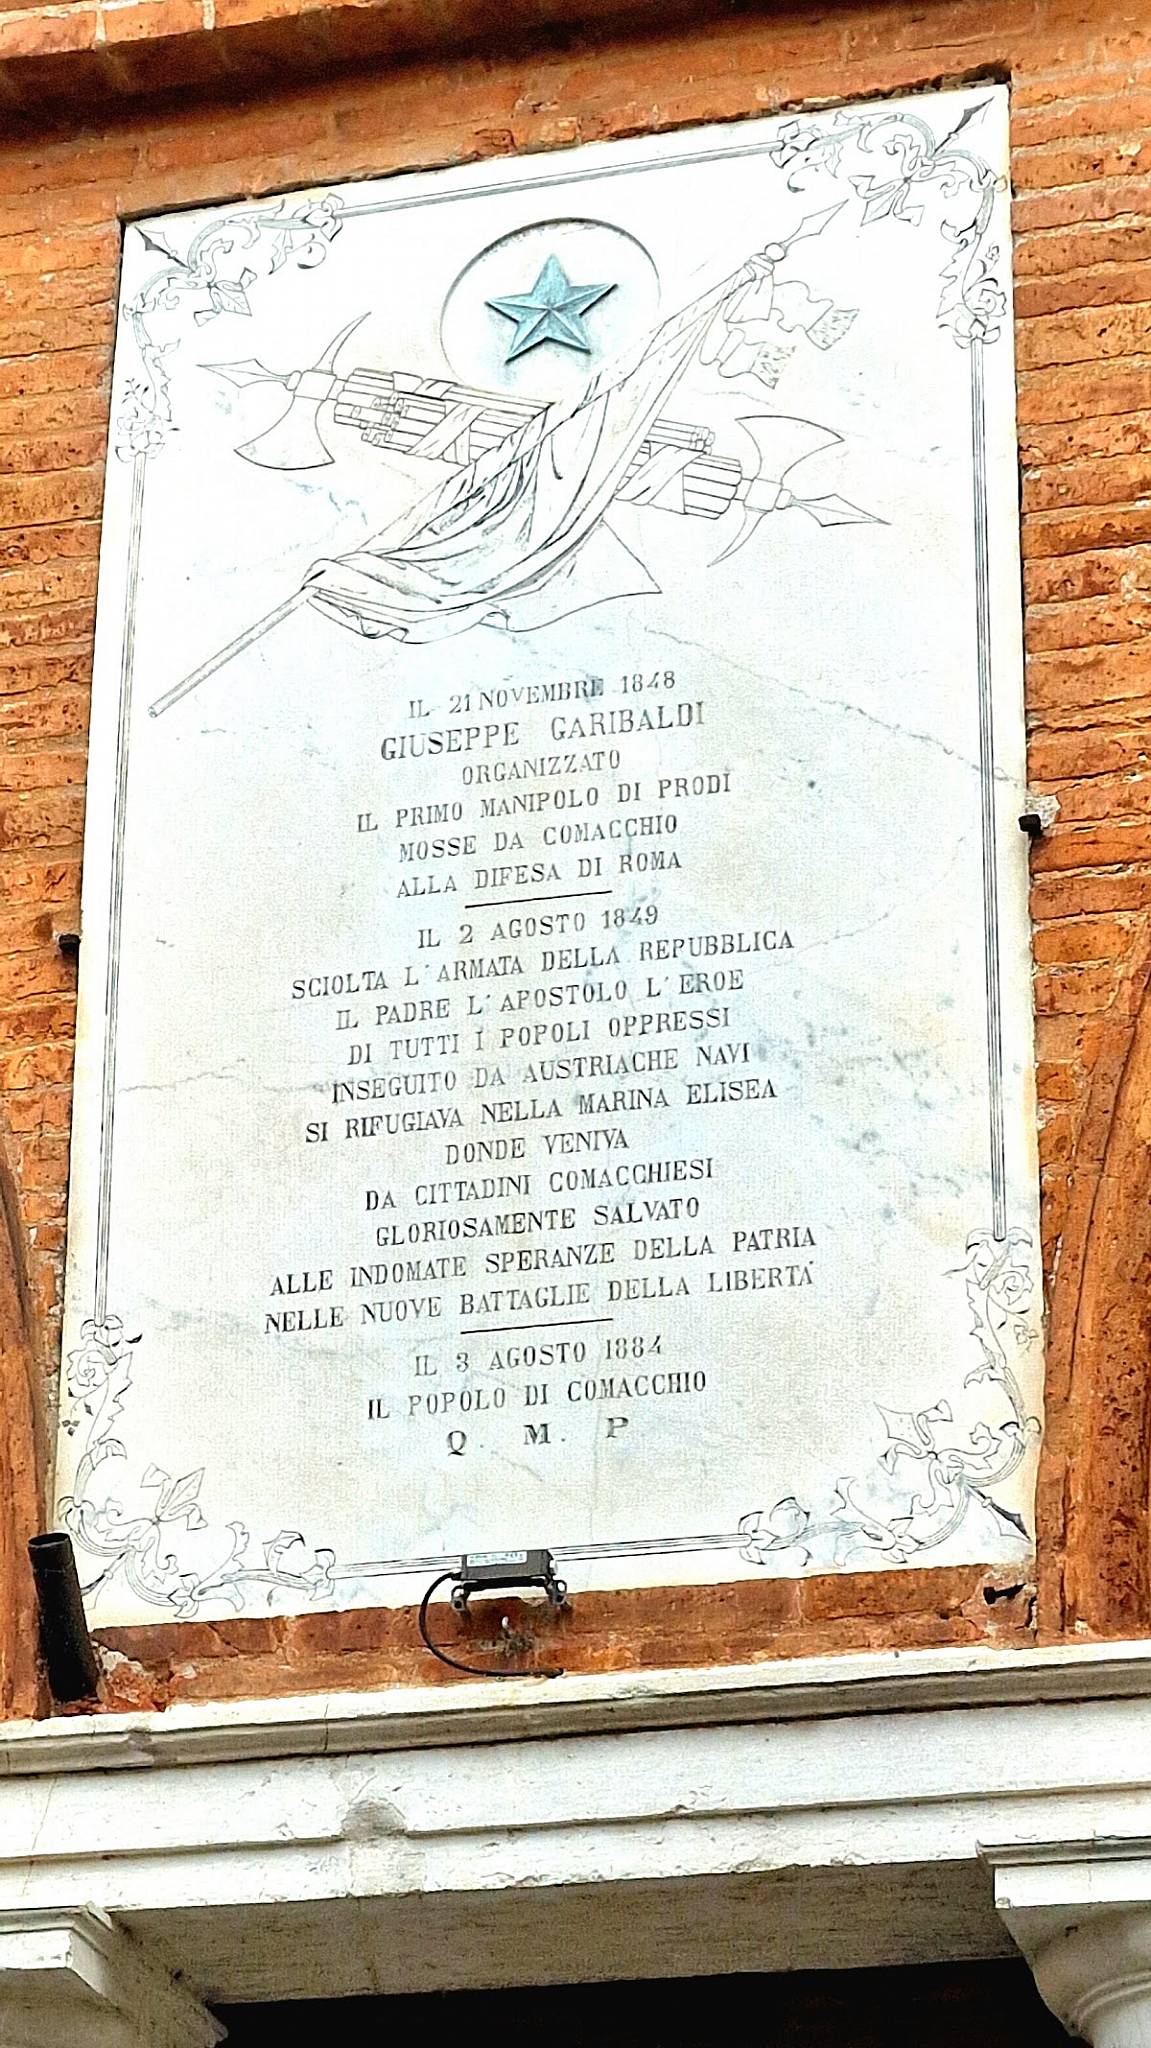 IL 21 NOVEMBRE 1848
GIUSEPPE GARIBALDI
ORGANIZZATO
IL PRIMO MANIPOLO DI PRODI
MOSSE DA COMACCHIO
ALLA DIFESA DI ROMA
IL 2 AGOSTO 1849
SCIOLTA L'ARMATA DELLA REPUBBLICA
IL PADRE L'APOSTOLO L'EROE
DI TUTTI I POPOLI OPPRESSI
INSEGUITO DA AUSTRIACHE NAVI
SI RIFUGIAVA NELLA MARINA ELISEA
DONDE VENIVA
DA CITTADINI COMACCHIESI
GLORIOSAMENTE SALVATO
ALLE INDOMATE SPERANZE DELLA PATRIA
NELLE NUOVE BATTAGLIE DELLA LIBERTÀ
IL 3 AGOSTO 1884
IL POPOLO DI COMACCHIO
Q. M. P